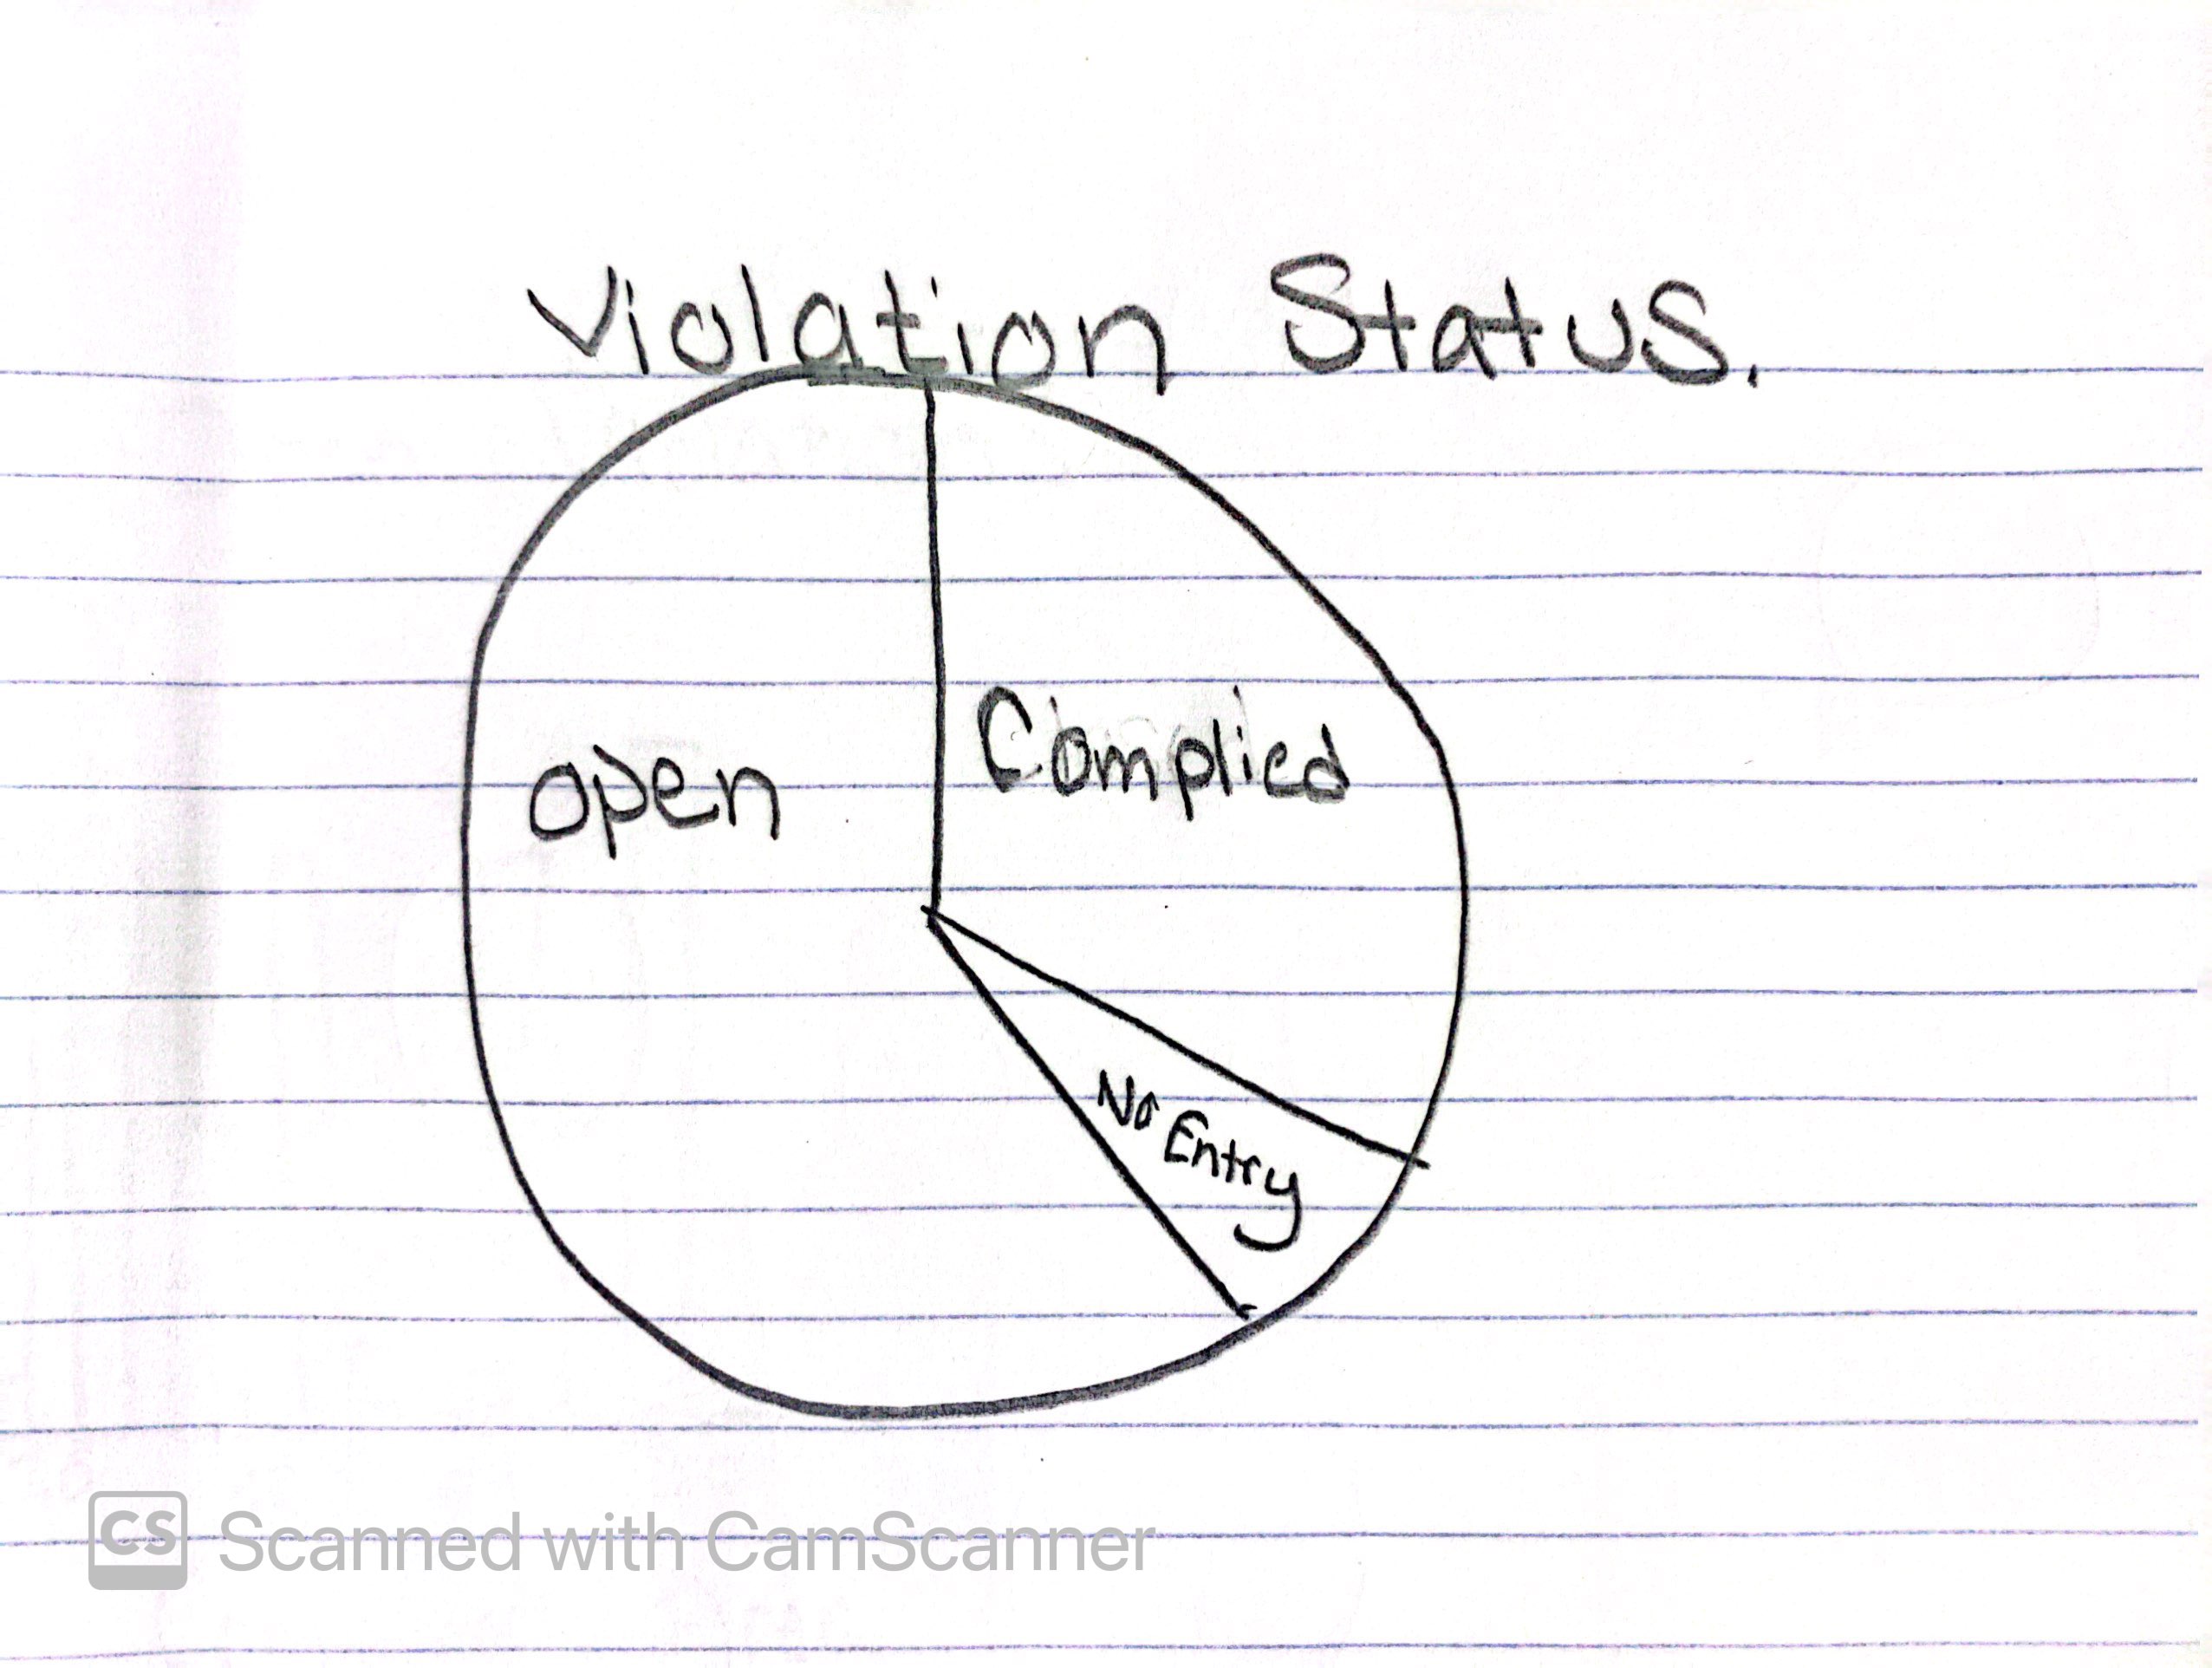 Violation Status.
open
Complied
No Entry
CS Scanned with CamScanner